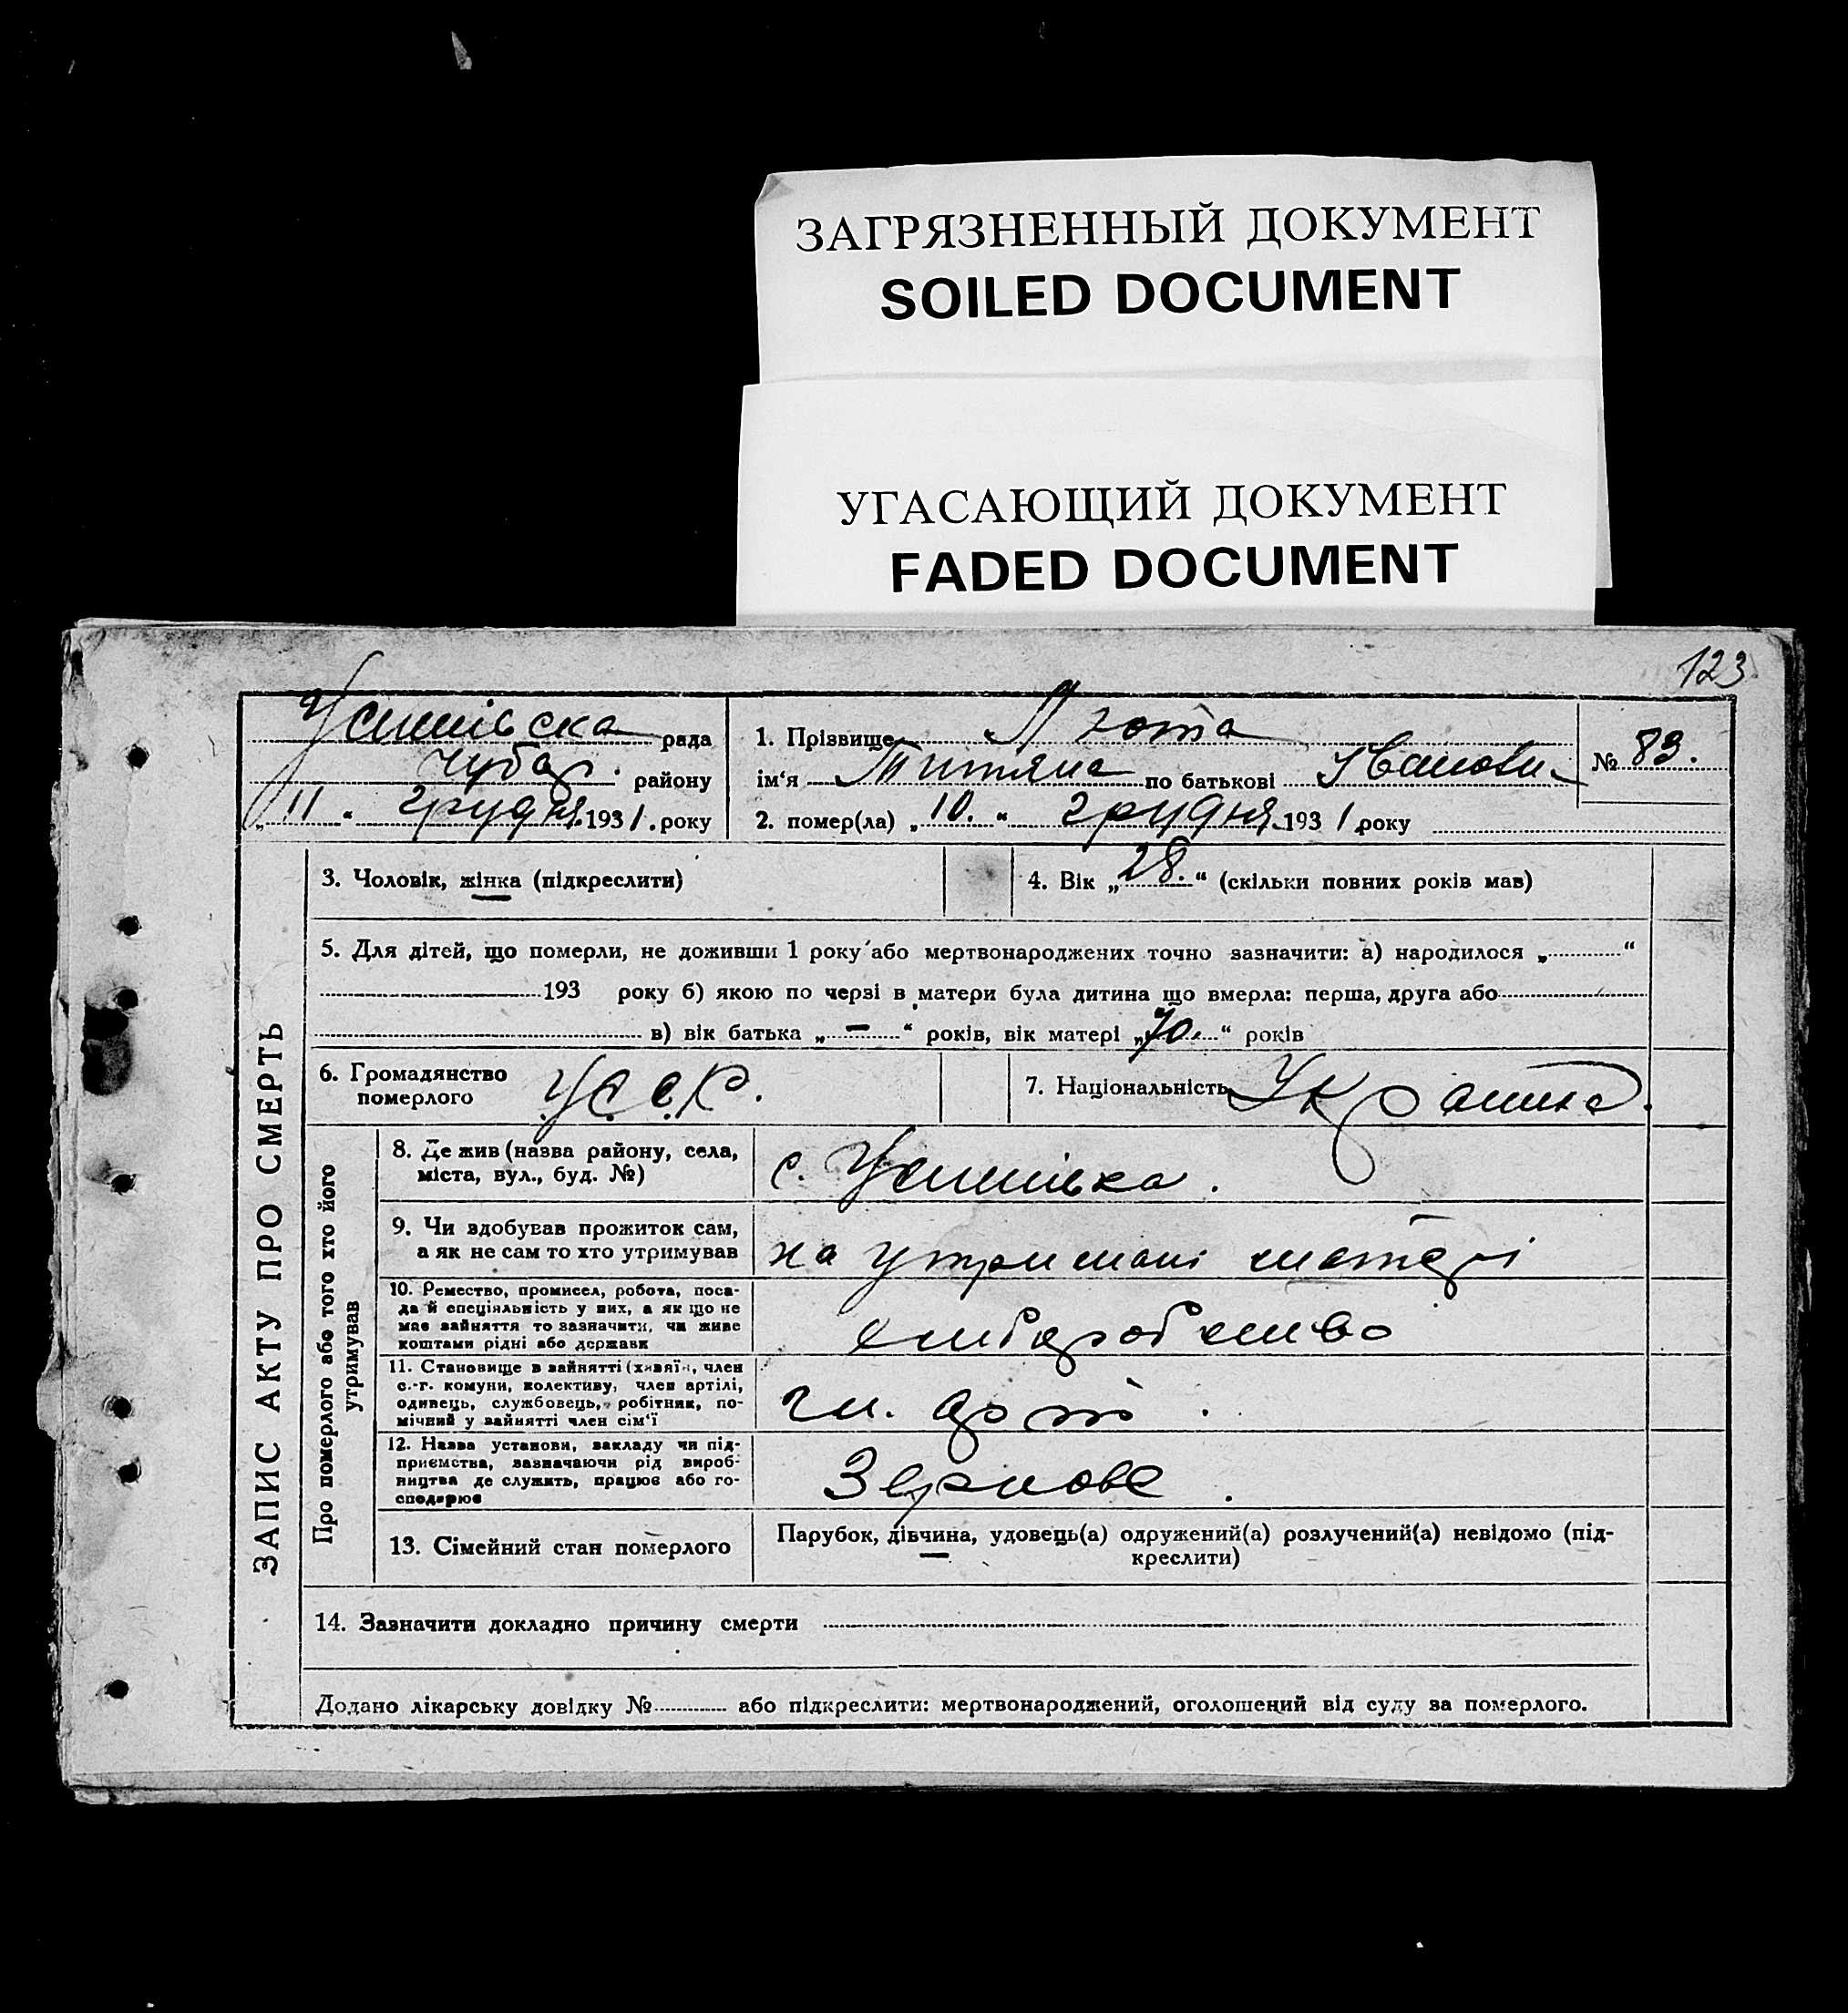 ЗАГРЯЗНЕННЫЙ ДОКУМЕНТ
SOILED DOCUMENT
УГАСАЮЩИЙ ДОКУМЕНТ
FADED DOCUMENT
123
рада
Чубар. району
„11" грудня 1931. року
1. Прізвище Люта
ім'я Титяна по батькові Іванови
№ 83.
2. помер(ла) „10." грудня 1931 року
ЗАПИС АКТУ ПРО СМЕРТЬ
3. Чоловік, жінка (підкреслити)
4. Вік „28." (скільки повних років мав)
5. Для дітей, що померли, не доживши 1 року або мертвонароджених точно зазначити: а) народилося „ "
193 року б) якою по черзі в матери була дитина що вмерла: перша, друга або
в) вік батька „–" років, вік матері „70." років
6. Громадянство
померлого
УССР.
7. Національність Украинка.
Про померлого або того хто його
утримував
8. Де жив (назва району, села,
міста, вул., буд. №)
с.
9. Чи здобував прожиток сам,
а як не сам то хто утримував
на утримані матері
10. Ремество, промисел, робота, поса-
да й спеціяльність у них, а як що не
має зайняття то зазначити, чи живе
коштами рідні або держави
хліборобство
11. Становище в зайнятті (хазяїн, член
с.-г. комуни, колективу, член артілі,
одинець, службовець, робітник, по-
мічний у зайнятті член сім'ї
чл. арт.
12. Назва установи, закладу чи під-
приємства, зазначаючи рід вироб-
ництва де служить, працює або го-
сподарює
Зернове.
13. Сімейний стан померлого
Парубок, дівчина, удовець(а) одружений(а) розлучений(а) невідомо (під-
креслити)
14. Зазначити докладно причину смерти
Додано лікарську довідку № або підкреслити: мертвонароджений, оголошений від суду за померлого.